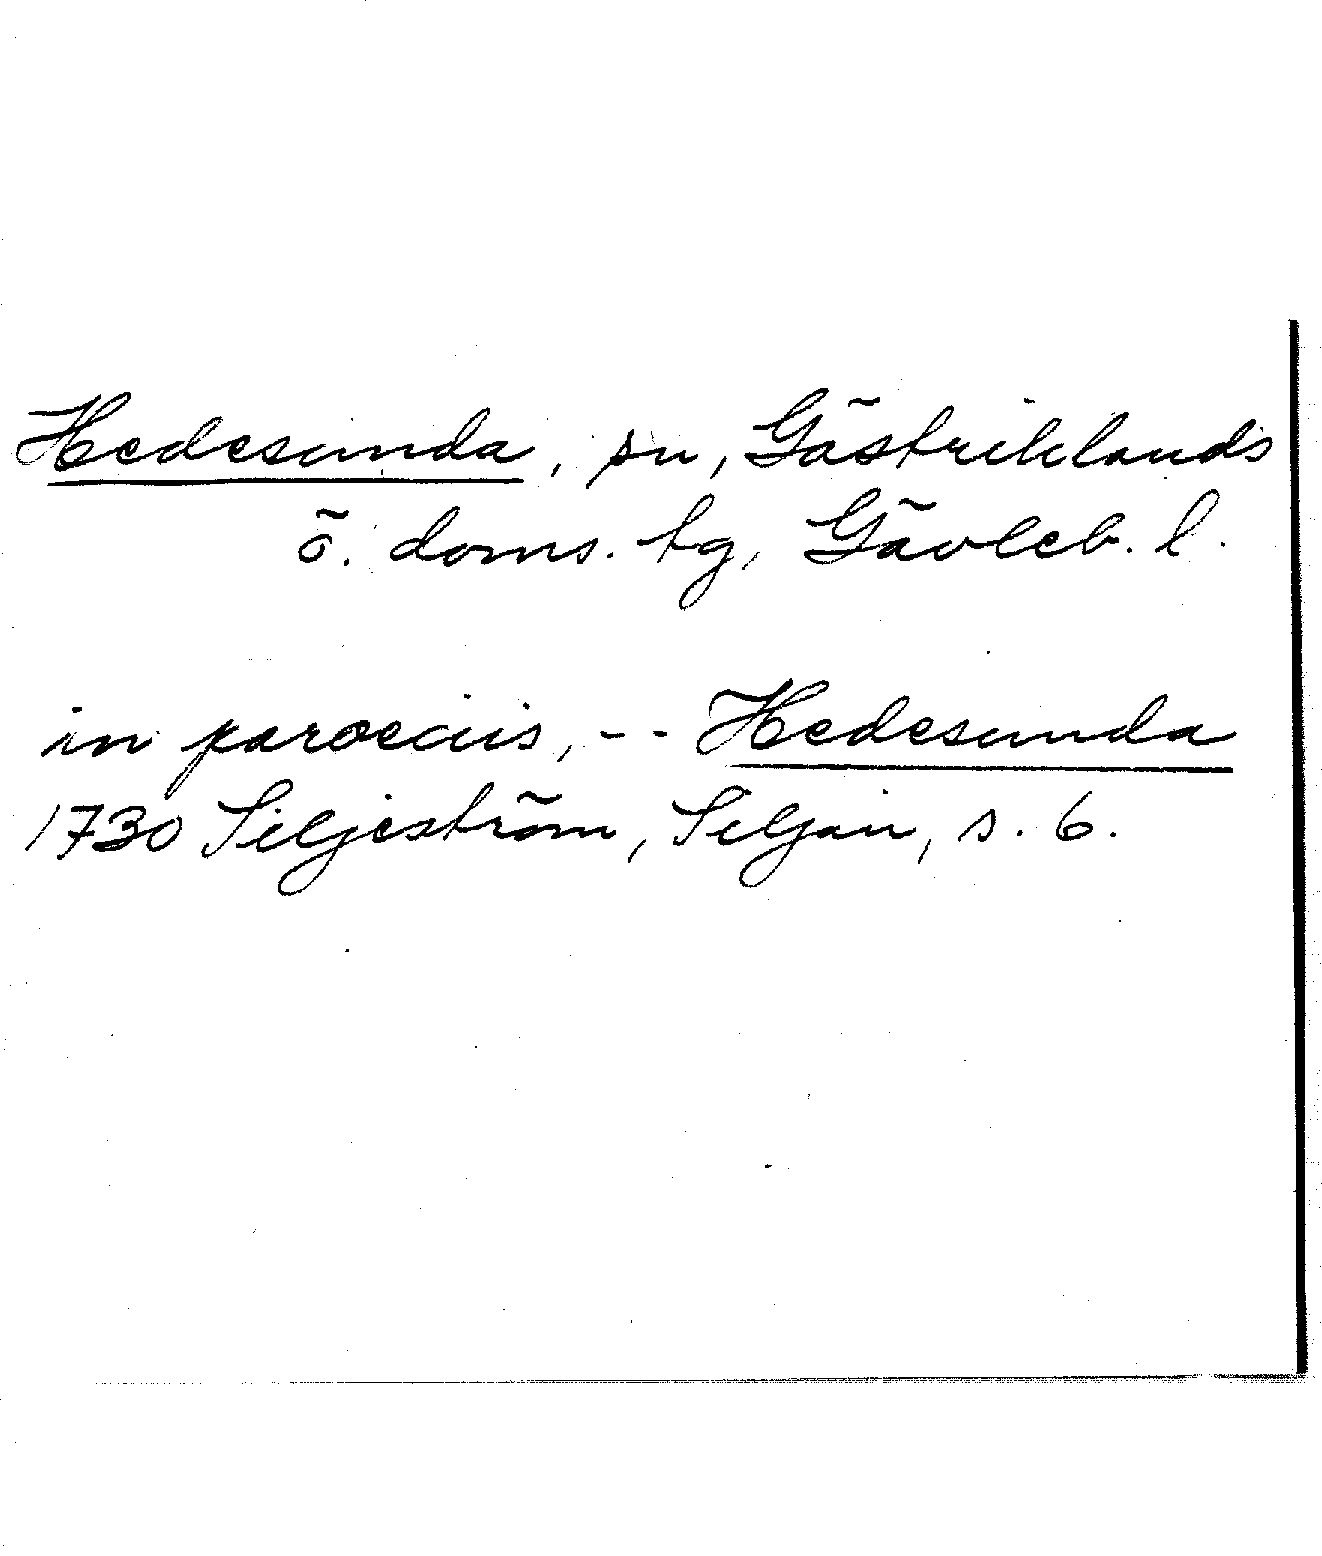 Hedesunda, sn, Gästriklands
ö. doms. tg, Gävleb. l.
in paroeciis, -- Hedesunda
1730 Siljeström, Seljan, s. 6.